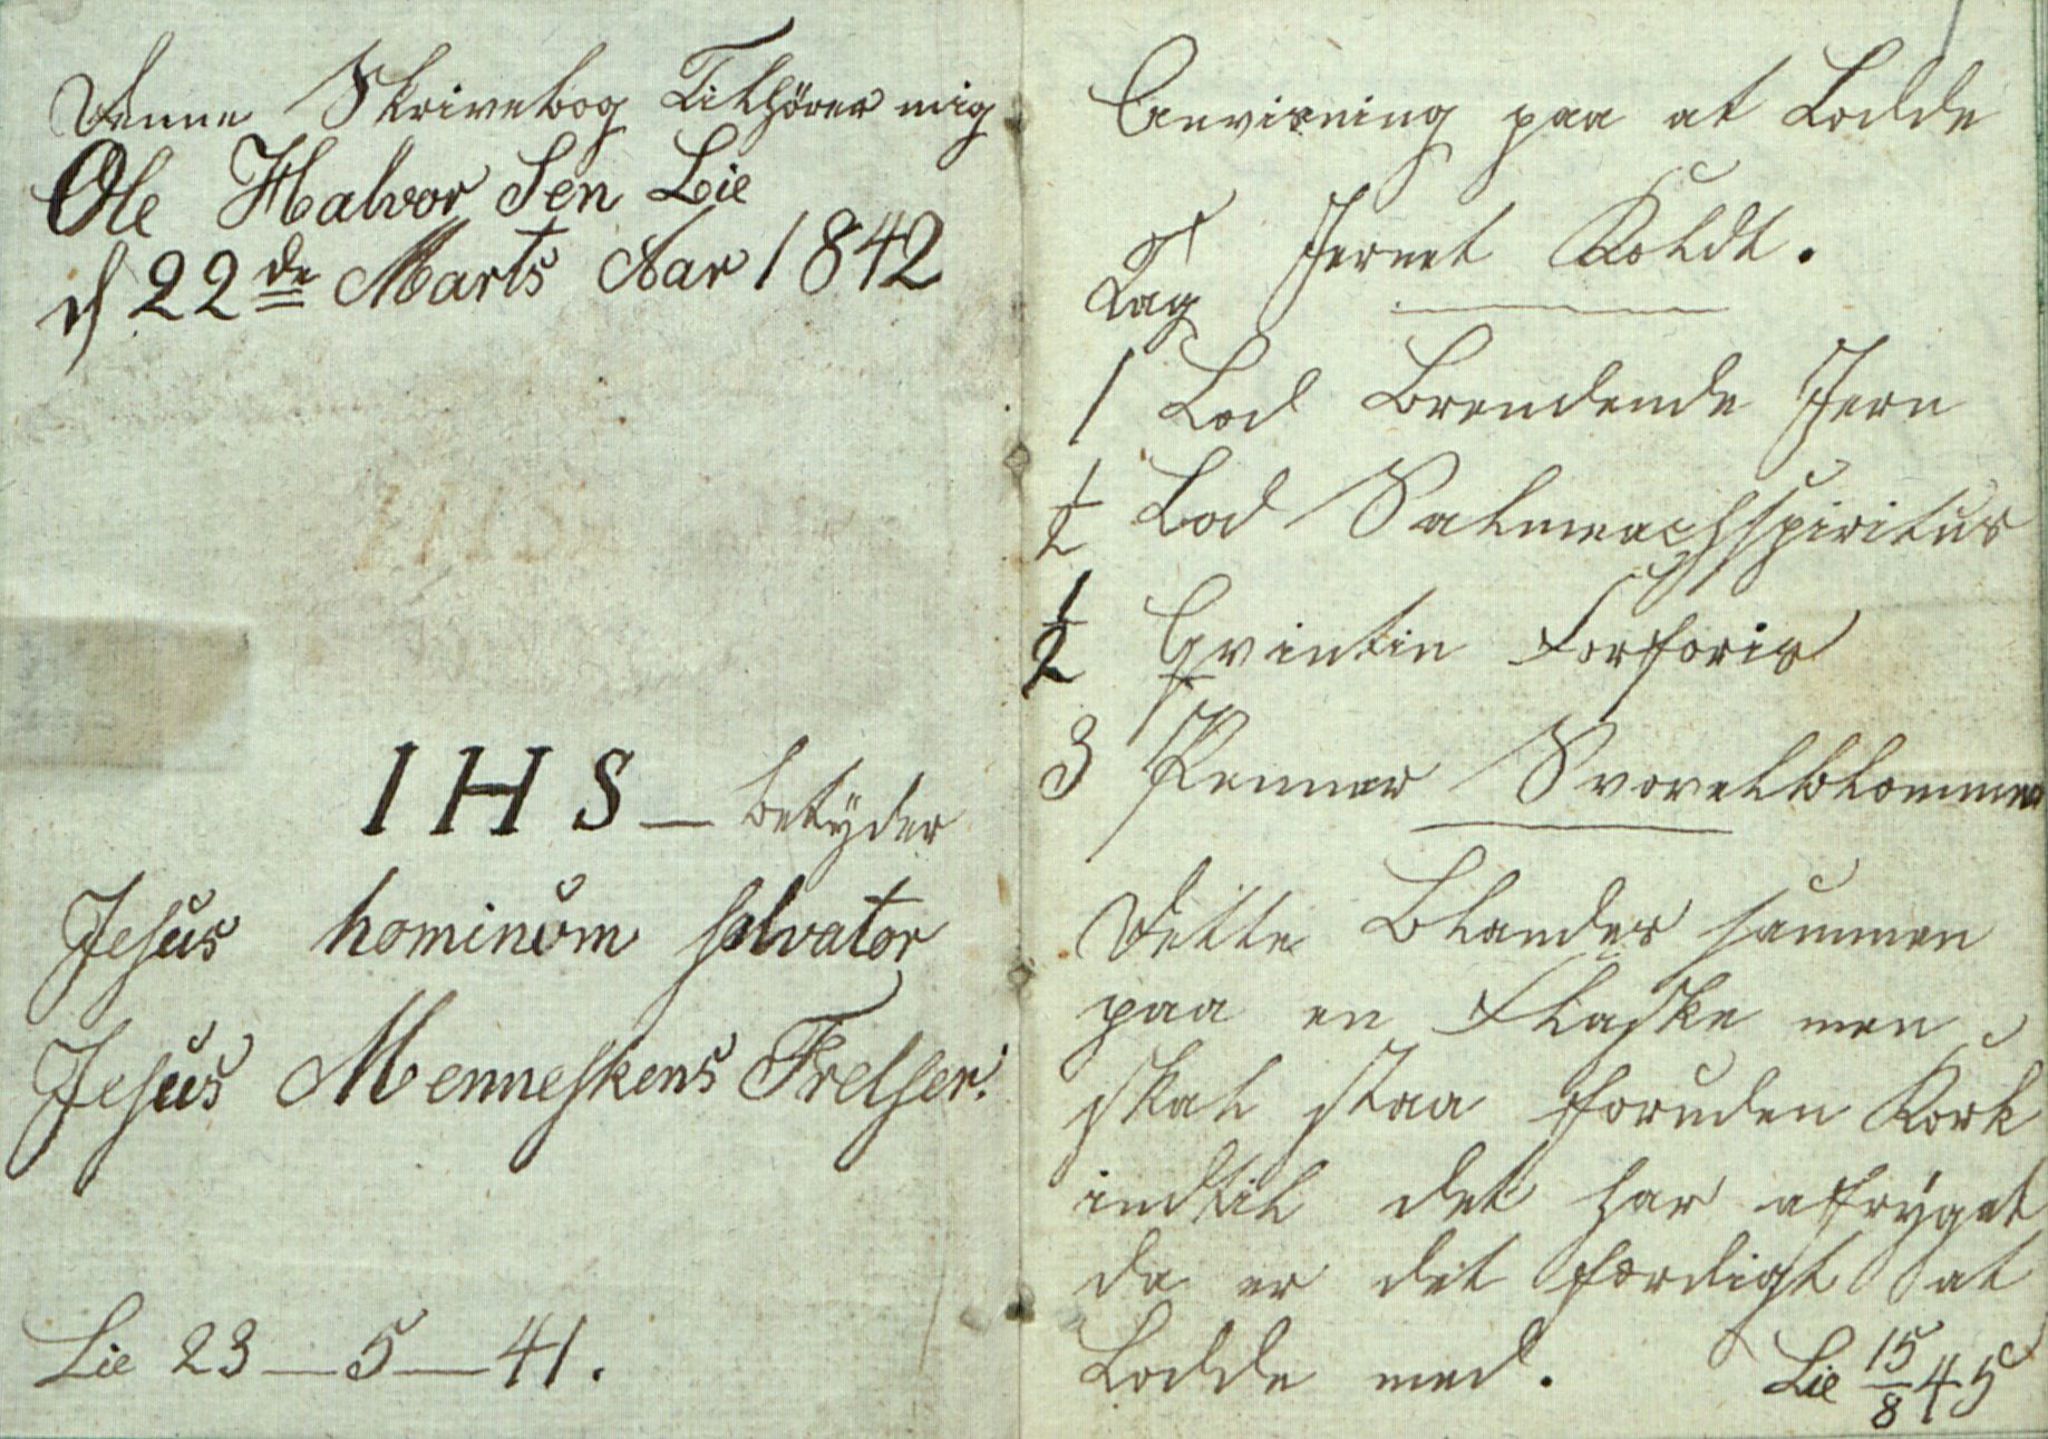 Denne Skrivebog Tilhører mig
Ole Halvor Sen Lie
d 22de Marts Aar 1842
IHS
I H S — betÿder
Jesus hominum salvator
Jesus Menneskens Frelser.
Lie 23 — 5 — 41.
Anvisning paa at Lodde
Jernet Koldt.
Tag
1 Lod Brendende Jern
1/2 Lod Salmeachspiritus
1/2 Qvintin Forforis
3 Kenner Svovelblommer
Dette Blandes sammen
paa en Flaske men
skal staa foruden Kork
indtil det har afrÿget
da er det færdigt at
Lodde med. Lie 15/8 45